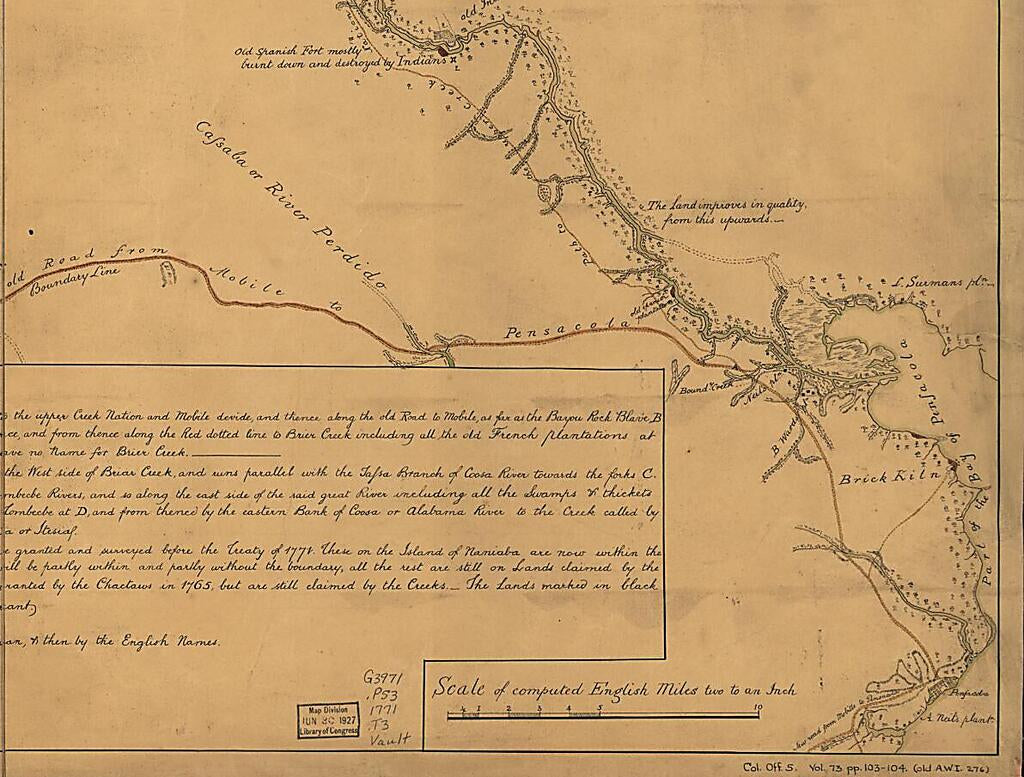 old In
Old Spanish Fort mostly
burnt down and destroyed by Indians
Creek
Cassaba or River Perdido
The land improves in quality,
from this upwards.
Path to
old Road from
Boundary Line
Mobile to
Pensacola
L. Surmans pln.
old
plantation
Bound. Creek
Neils
B. Ward
Brick Kiln
Part of the Bay of Pensacola
the upper Creek Nation and Mobile devide, and thence along the old Road to Mobile, as far as the Bayou Rock Blave, B
ce, and from thence along the Red dotted line to Brier Creek including all the old French plantations at
ave no Name for Brier Creek.
the West side of Briar Creek, and runs parallel with the Tassa Branch of Coosa River towards the forks C.
mbecbe Rivers, and so along the east side of the said great River including all the Swamps & thickets
Tombecbe at D, and from thence by the eastern Bank of Coosa or Alabama River to the Creek called by
a or Itesiaf.
e granted and surveyed before the Treaty of 1771. These on the Island of Naniaba are now within the
ill be partly within and partly without the boundary, all the rest are still on Lands claimed by the
ranted by the Chactaws in 1765, but are still claimed by the Creeks. The Lands marked in black
cant,
an, & then by the English Names.
G3971
.P53
1771
.T3
Vault
Map Division
JUN 30 1927
Library of Congress
Scale of computed English Miles two to an Inch
1 2 3 4 5 10
New road from Mobile to Pensacola
Pensacola
A. Neils plant.
Col. Off. 5. Vol. 73 pp. 103-104. (old A.W.I. 276)